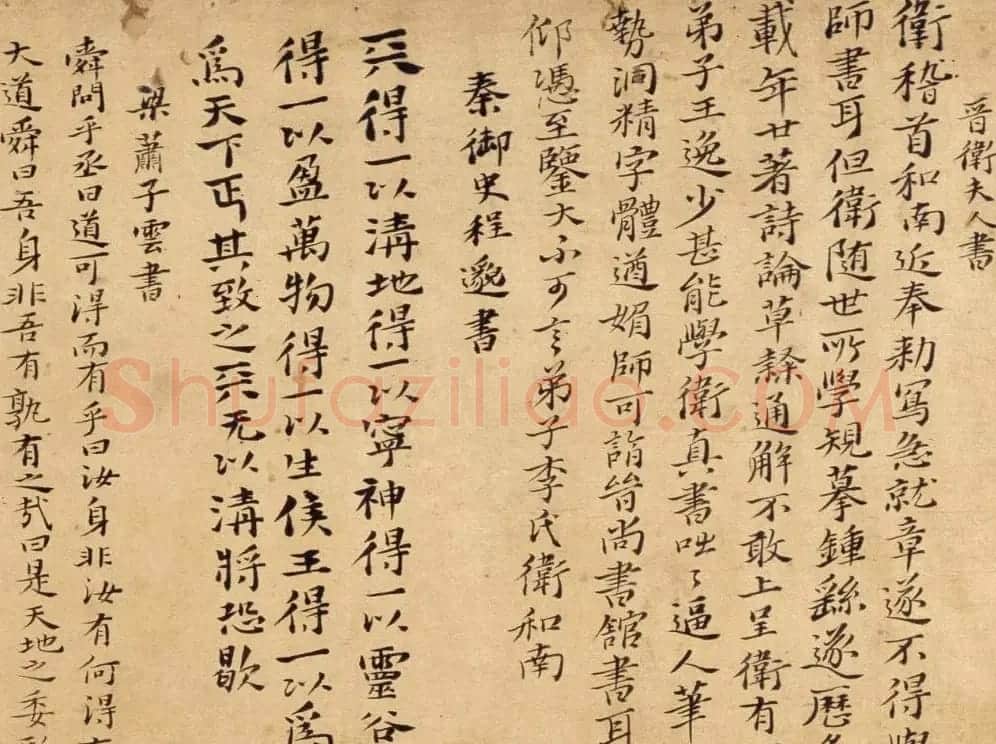 晉衛夫人書
衛稽首和南近奉勑寫急就章遂不得與
師書耳但衛随世所學規摹鍾繇遂歷多
載年廿著詩論草隸通解不敢上呈衛有
弟子王逸少甚能學衛真書咄〻逼人筆
勢洞精字體遒媚師可詣晉尚書館書耳
仰憑至鑒大不可言弟子李氏衛和南
秦御史程邈書
天得一以清地得一以寧神得一以靈谷
得一以盈萬物得一以生侯王得一以爲
爲天下正其致之天无以清將恐歇
梁蕭子雲書
舜問乎丞曰道可得而有乎曰汝身非汝有何得有
大道舜曰吾身非吾有孰有之哉曰是天地之委形
Shufaziliao.COM